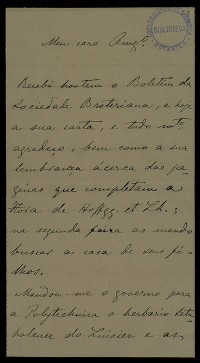 BIBLIOTECA
Meu caro Amgº.
Recebi hontem o Boletim da
Sociedade Broteriana, e hoje
a sua carta, e tudo mtº
agradeço, bem como a sua
lembrança ácerca das pa-
ginas que completam a
Flora de Hoffgg. et Lk.;
na segunda feira as mando
buscar a casa de seus fi-
lhos.
Mandou-me o governo para
a Polytechnica o herbario Setu-
balense do Luisier e as